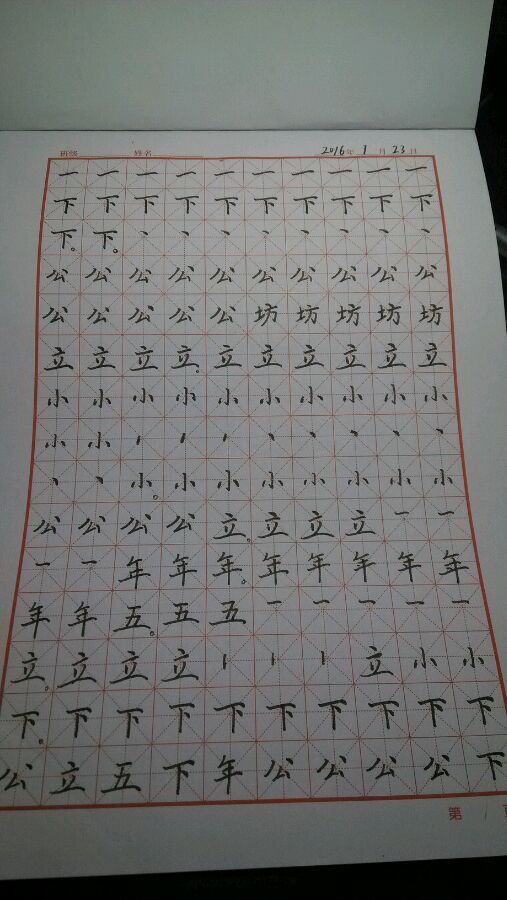 班级 姓名 2016年 1月 23日
一 一 一 一 一 一 一 一 一 一
下 下 下 下 下 下 下 下 下 下
下。 下。 丶 丶 丶 丶 丶 丶 丶 丶
公 公 公 公 公 公 公 公 公 公
公 公 公 公 公 坊 坊 坊 坊 坊
立 立 立 立。 立 立 立 立 立 立
小 小 小 小 小 小 小 小 小 小
小 小 丶 丶 丶 丶 丶 丶 丶 丶
丶 丶 小。 小 小 小 小 小 小 小
公 公 公 公 立。 立 立 立 一 一
一 一 年 年 年。 年 年 年 年 年
年 年 五。 五 五 一 一 一 一 一
立。 立 立 立 丨 丨 丨 立 小 小
下。 下 下 下 下 下 下 下 下 下
公 立 五 下 年 公 公 公 公 下
第 页